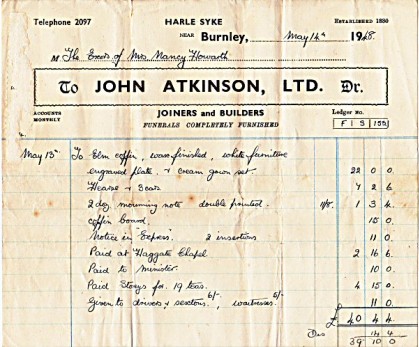 Telephone 2097 HARLE SYKE ESTABLISHED 1880
NEAR Burnley, May 14th 1948.
M The Exors of Mrs Nancy Howarth
To JOHN ATKINSON, LTD. Dr.
ACCOUNTS MONTHLY JOINERS and BUILDERS Ledger No.
FUNERALS COMPLETELY FURNISHED F | S | 155
May 13th To Elm coffin, wax finished, white furniture
engraved plate, & cream gown set. 22 0 0
Hearse & 3 cars 7 2 6
2 doz mourning note double printed. 11/8. 1 3 4
coffin board. 15 0
Notice in "Express". 2 insertions 11 0
Paid at Haggate Chapel 2 16 6
Paid to Minister. 10 0
Paid Storys for 19 teas. 4 15 0
Given to drivers & sextons, 6/- waitresses. 5/- 11 0
£ 40 4 4
Dis 14 4
39 10 0